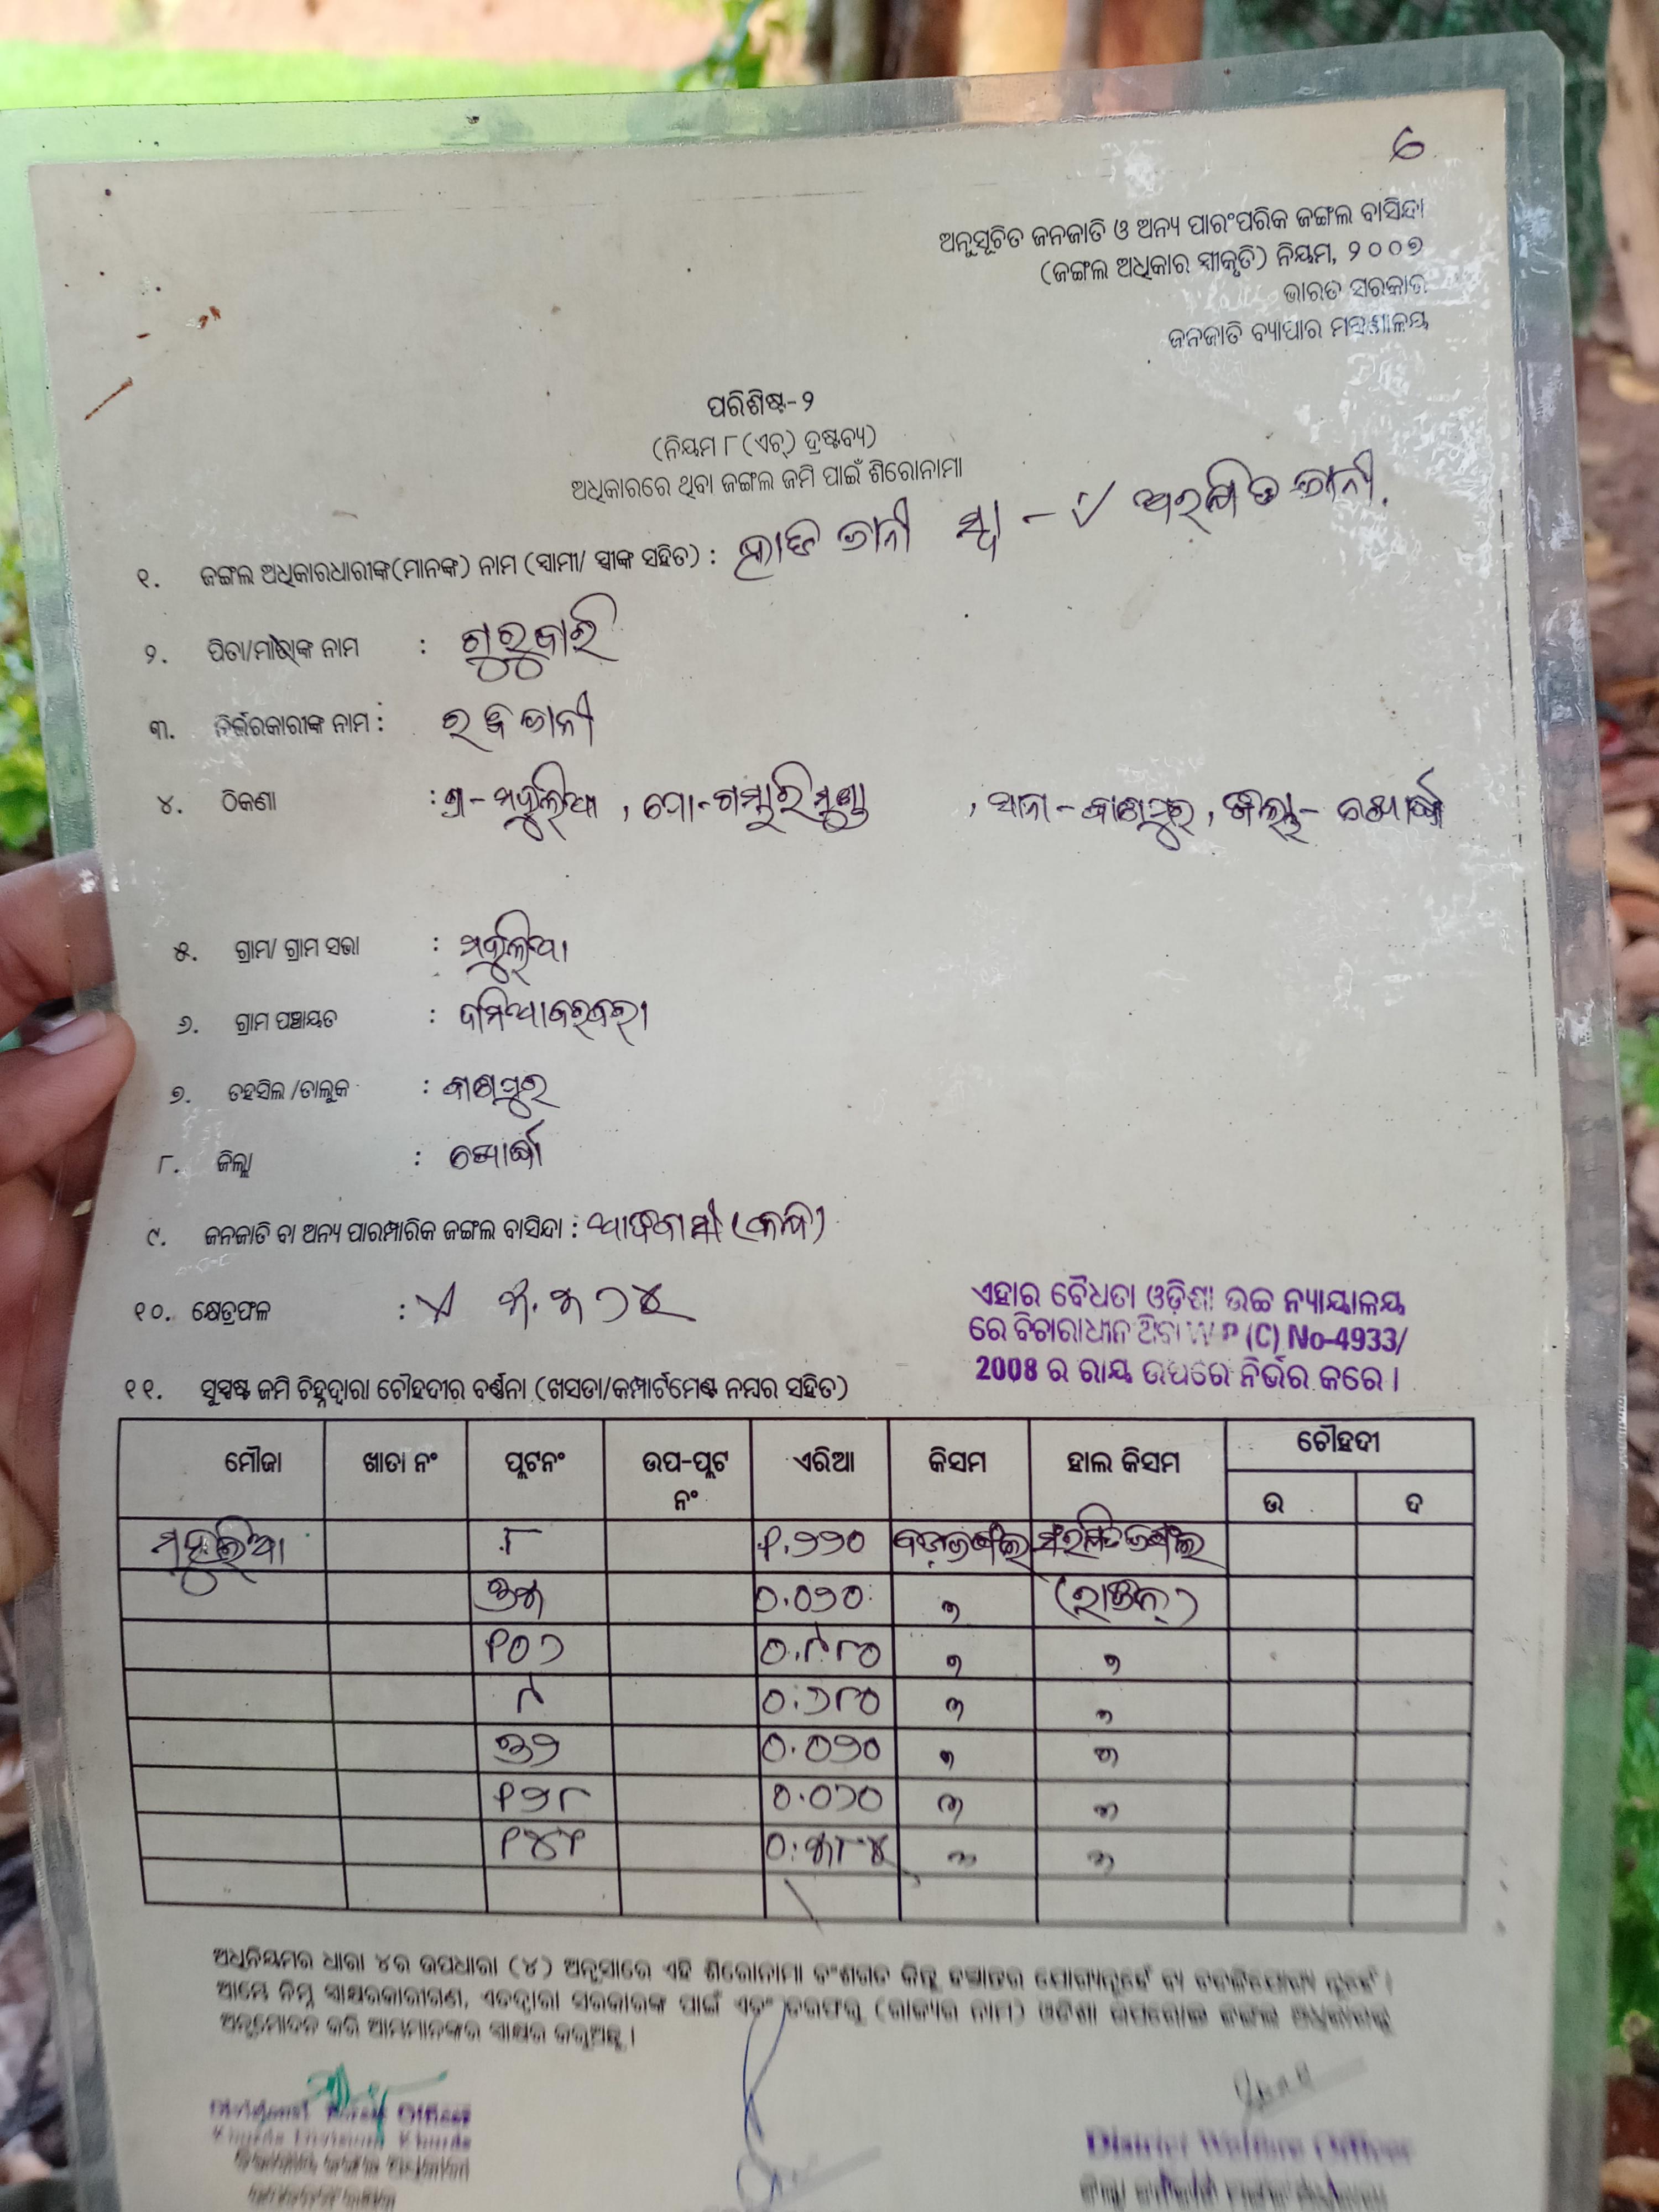 ୬
ଅନୁସୂଚିତ ଜନଜାତି ଓ ଅନ୍ୟ ପାରଂପରିକ ଜଙ୍ଗଲ ବାସିନ୍ଦା
(ଜଙ୍ଗଲ ଅଧିକାର ସ୍ୱୀକୃତି) ନିୟମ, ୨୦୦୭
ଭାରତ ସରକାର
ଜନଜାତି ବ୍ୟାପାର ମନ୍ତ୍ରଣାଳୟ
ପରିଶିଷ୍ଟ-୨
(ନିୟମ ୮ (ଏଚ୍) ଦ୍ରଷ୍ଟବ୍ୟ)
ଅଧିକାରରେ ଥିବା ଜଙ୍ଗଲ ଜମି ପାଇଁ ଶିରୋନାମା
୧. ଜଙ୍ଗଲ ଅଧିକାରଧାରୀଙ୍କ(ମାନଙ୍କ) ନାମ (ସ୍ୱାମୀ/ ସ୍ତ୍ରୀଙ୍କ ସହିତ) : ଜାନୀ ଜାନୀ
୨. ପିତା/ମାତାଙ୍କ ନାମ : ଗୁରୁବାରି
୩. ନିର୍ଭରକାରୀଙ୍କ ନାମ : ଜାନୀ
୪. ଠିକଣା : ଗ୍ରା- ମହୁଲିଆ , ପୋ-ଗମ୍ଭାରିମୁଣ୍ଡା , ଥାନା - ବାଣପୁର, ଜିଲ୍ଲା- ଖୋର୍ଦ୍ଧା
୫. ଗ୍ରାମ/ ଗ୍ରାମ ସଭା : ମହୁଲିଆ
୬. ଗ୍ରାମ ପଞ୍ଚାୟତ :
୭. ତହସିଲ /ତାଲୁକ : ବାଣପୁର
୮. ଜିଲ୍ଲା : ଖୋର୍ଦ୍ଧା
୯. ଜନଜାତି ବା ଅନ୍ୟ ପାରମ୍ପାରିକ ଜଙ୍ଗଲ ବାସିନ୍ଦା : ଆଦିବାସୀ (କନ୍ଧ)
୧୦. କ୍ଷେତ୍ରଫଳ : ୩.୩୨୪
ଏହାର ବୈଧତା ଓଡ଼ିଶା ଉଚ୍ଚ ନ୍ୟାୟାଳୟ
ରେ ବିଚାରାଧୀନ ଥିବା W P (C) No-4933/
2008 ର ରାୟ ଉପରେ ନିର୍ଭର କରେ ।
୧୧. ସୁସ୍ପଷ୍ଟ ଜମି ଚିହ୍ନଦ୍ୱାରା ଚୌହଦୀର ବର୍ଣ୍ଣନା (ଖସଡା/କମ୍ପାର୍ଟମେଣ୍ଟ ନମ୍ବର ସହିତ)
ମୌଜା ଖାତା ନଂ ପ୍ଲଟନଂ ଉପ-ପ୍ଲଟ ନଂ ଏରିଆ କିସମ ହାଲ କିସମ ଚୌହଦୀ
ଉ ଦ
ମହୁଲିଆ ୮ ୧.୨୨୦
୦.୦୨୦
୧୦୨ ୦.୯୮୦
୯ ୦.୨୮୦
୦.୦୨୦
୧୨୮ ୦.୦୨୦
୧୪୧ ୦.୩୮୪
ଅଧିନିୟମର ଧାରା ୪ର ଉପଧାରା (୪) ଅନୁସାରେ ଏହି ଶିରୋନାମା ବଂଶଗତ କିନ୍ତୁ ହସ୍ତାନ୍ତର ଯୋଗ୍ୟନୁହେଁ ବା ବଦଳିଯୋଗ୍ୟ ନୁହେଁ ।
ଆମ୍ଭେ ନିମ୍ନ ସ୍ୱାକ୍ଷରକାରୀଗଣ, ଏତଦ୍ୱାରା ସରକାରଙ୍କ ପାଇଁ ଏବଂ ତରଫରୁ (ରାଜ୍ୟର ନାମ) ଓଡିଶା ଉପରୋକ୍ତ ଜଙ୍ଗଲ ଅଧିକାରକୁ
ଅନୁମୋଦନ କରି ଆମ୍ଭମାନଙ୍କର ସ୍ୱାକ୍ଷର କରୁଅଛୁ ।
Divisional Forest Officer
Khurda Division Khurda
District Welfare Officer